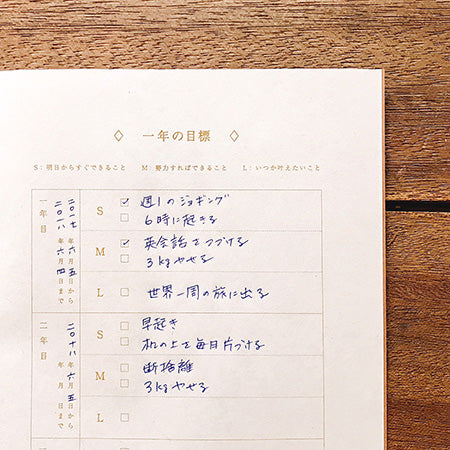 ◇ 一年の目標 ◇
S:明日からすぐできること M:努力すればできること L:いつか叶えたいこと
一年目
二〇一七年 六月 五日から
二〇一八年 六月 四日まで
S ☑ 週1のジョギング
☐ 6時に起きる
M ☑ 英会話をつづける
☐ 3kgやせる
L ☐ 世界一周の旅に出る
二年目
二〇一八年 六月 五日から
年 月 日まで
S ☐ 早起き
☐ 机の上を毎日片づける
M ☐ 断捨離
☐ 3kgやせる
L ☐